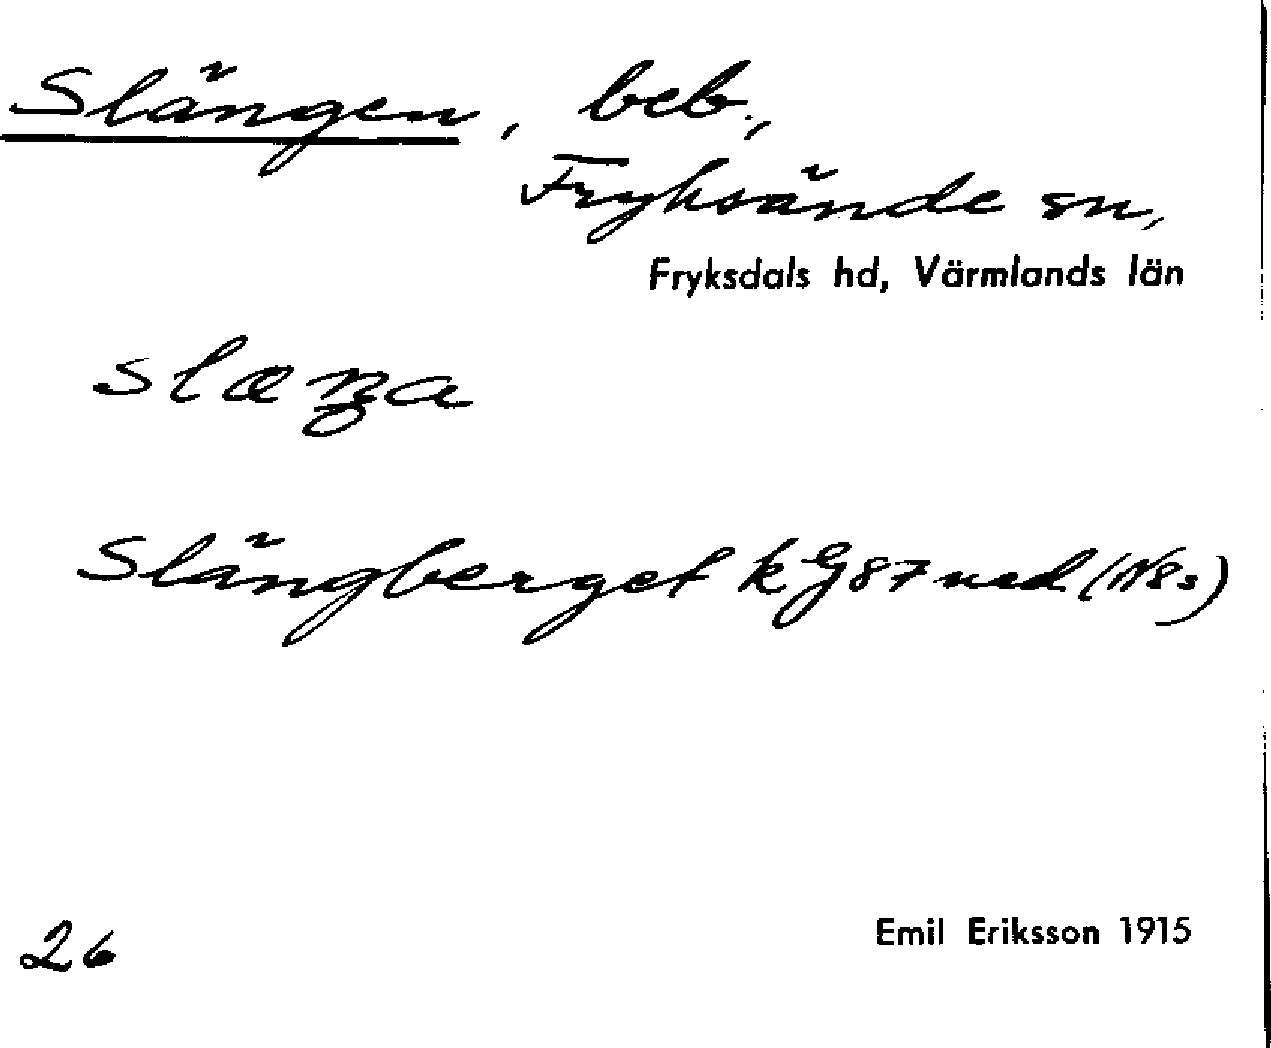 Slängen, beb.,
Fryksände sn,
Fryksdals hd, Värmlands län
slæŋa
Slängberget k G87 ned
26
Emil Eriksson 1915